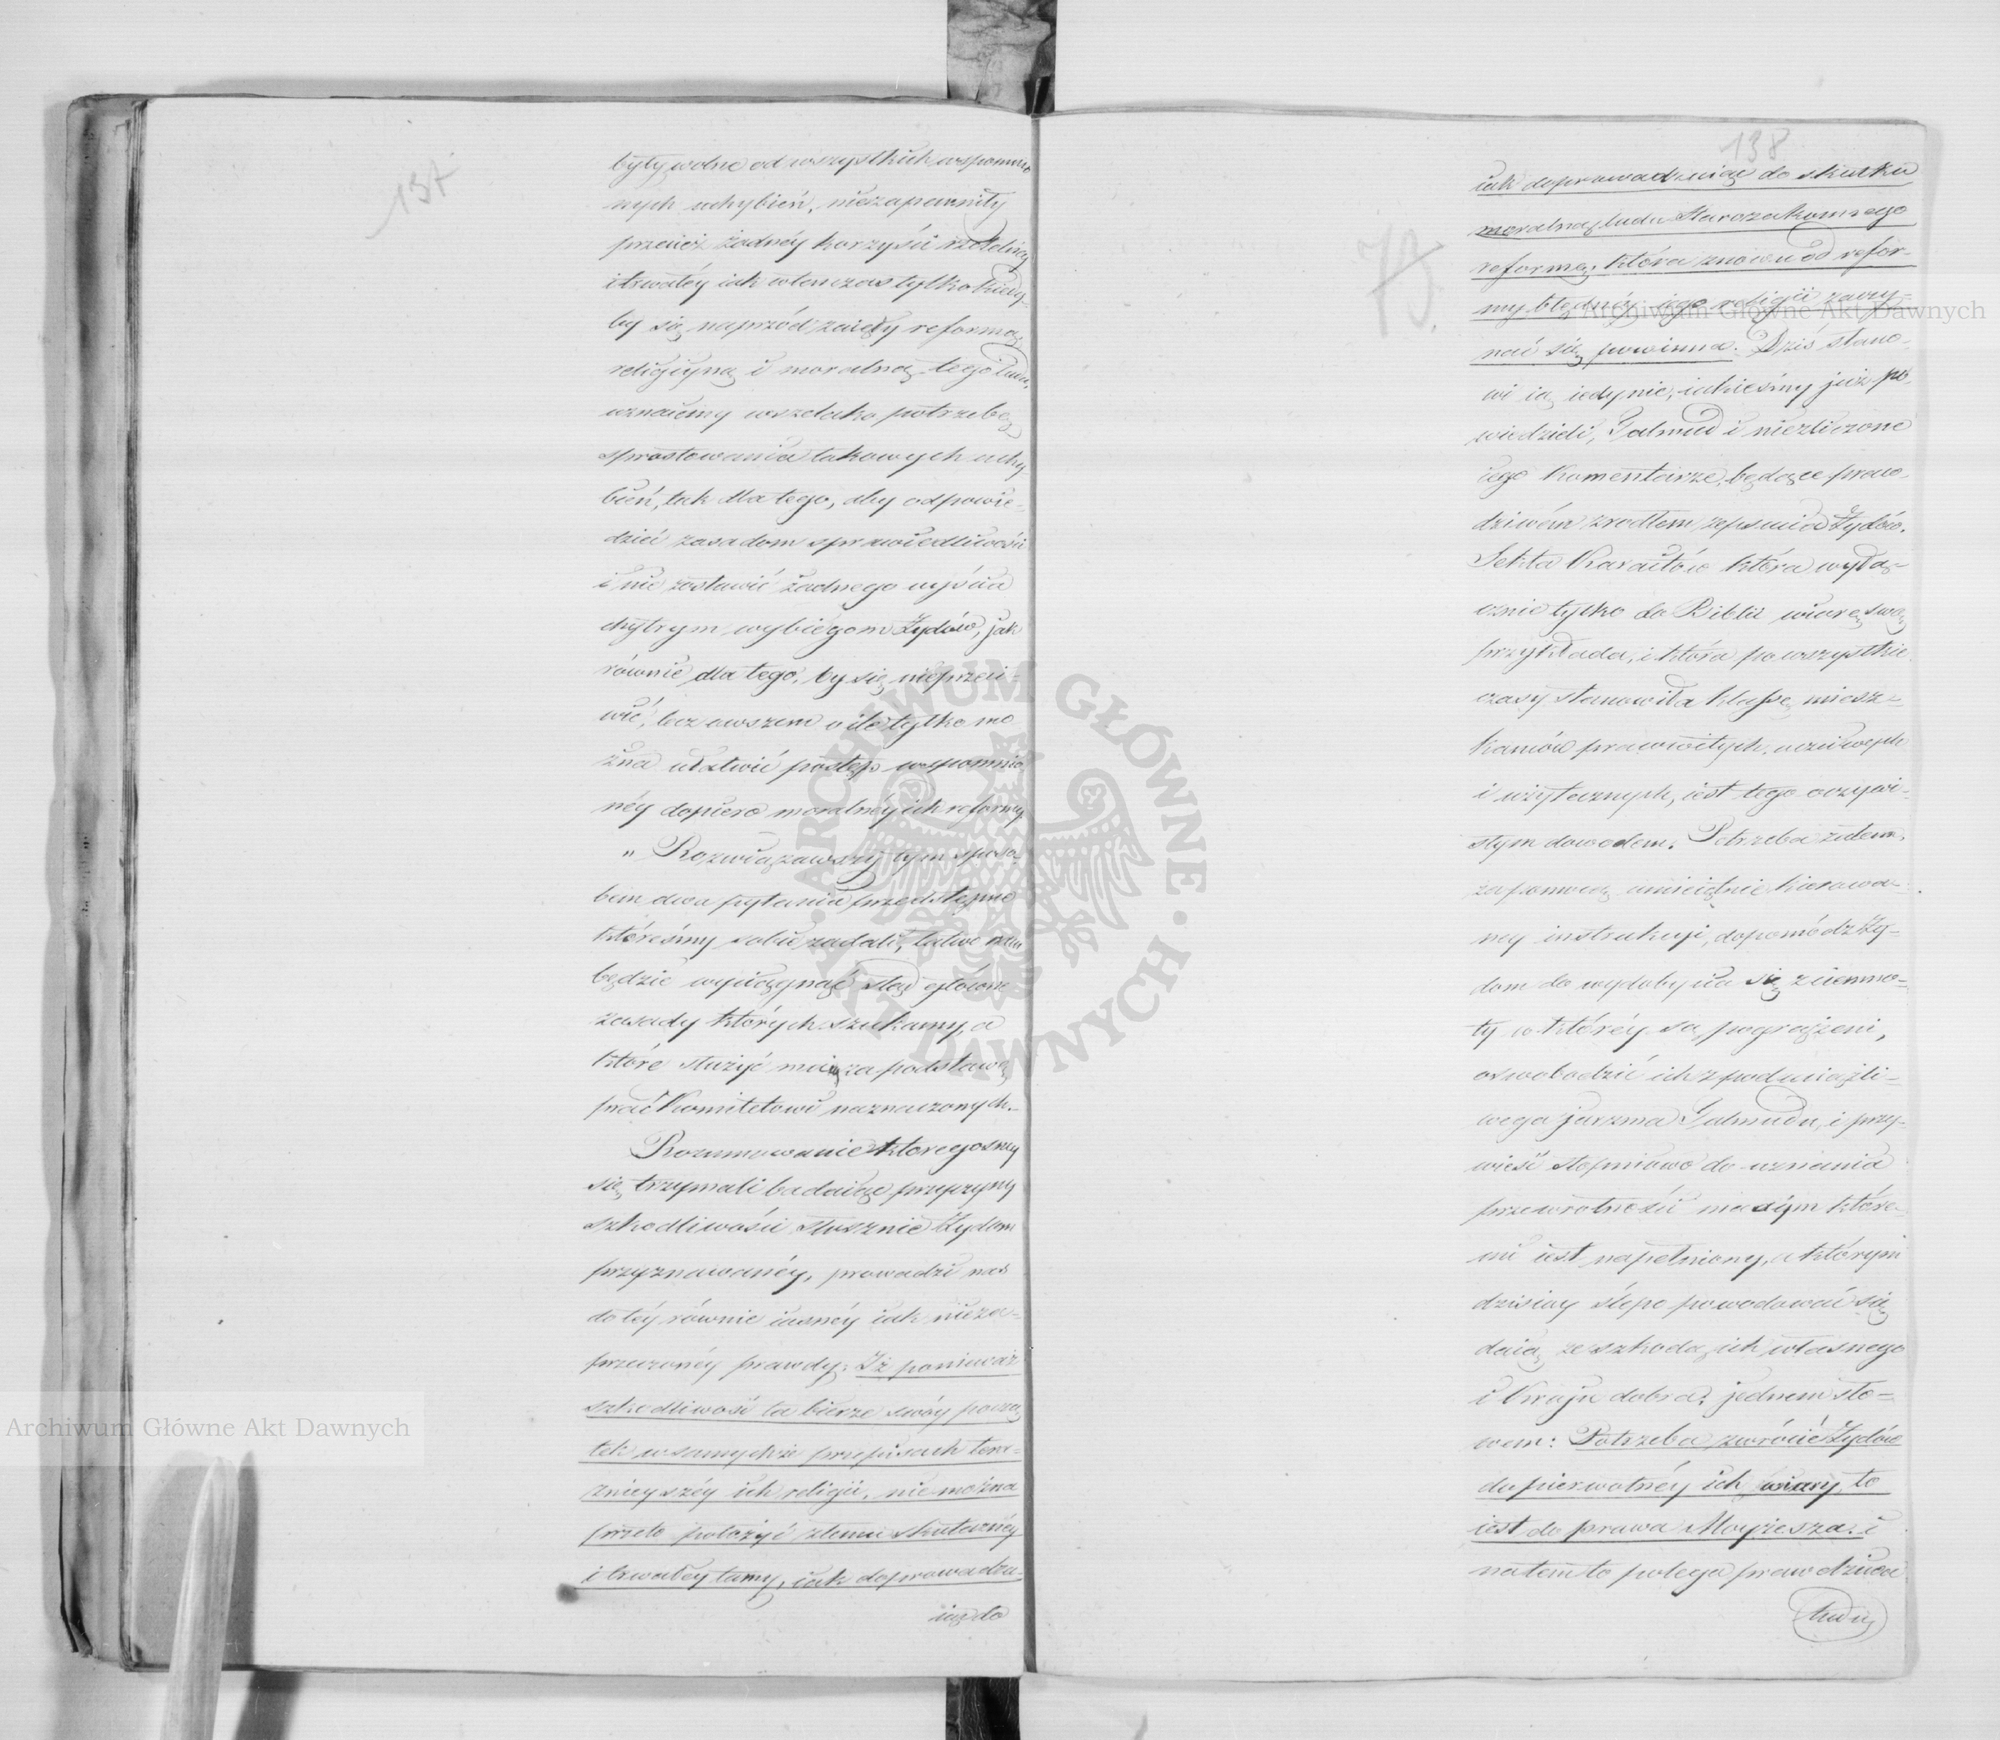 137
były wolne od wszystkich wspomnio
nych uchybień, niezapewniły
przecież żadnéy korzyści rzetelnéy
i trwałéy iak wtenczas tylko kiedy
by się naprzód zaięły reformą
religiyną i moralną tego ludu,
uznaiemy wszelako potrzebę
sprostowania takowych uchy-
bień, tak dla tego, aby odpowie-
dzieć zasadom sprawiedliwości
i nie zostawić żadnego wyścia
chytrym wybiegom Żydów, jak
równie dla tego, by się nieprzeci-
wić, lecz owszem o ile tylko mo
żna ułatwić postęp wspomnio
néy dopiero moralnéy ich reformy.
" Rozwiązawszy tym sposo-
bem dwa pytania przedstępne
któreśmy sobie zadali, łatwo nam
będzie wyciągnąć stąd główne
zasady których szukamy, a
które służyć maią za podstawę
prac Komitetowi naznaczonych.
Rozumowanie któregośmy
się trzymali badaiąc przyczyny
szkodliwości słusznie Żydom
przyznawanéy, prowadzi nas
do téy równie iasnéy iak nieza-
przeczonéy prawdy: Iż ponieważ
szkodliwość ta bierze swóy począ
tek w samychże przepisach tera-
znieyszéy ich religii, nie można
przeto położyć złemu skutecznéy
i trwałéy tamy, iak doprowadza-
iąc do
138
73.
iak doprowadzaiąc do skutku
moralną ludu Starozakonnego
reformę, która znowu od refor-
my błędnéy iego religii zaczy-
nać się powinna. Dziś stano-
wi ią iedynie, iakieśmy już po-
wiedzieli, Talmud i niezliczone
iego komentarze, będące praw-
dziwém zrodłem zepsucia Żydów.
Sekta Karaitów która wyłą-
cznie tylko do Biblii wiarę swą
przykłada, i która po wszystkie
czasy stanowiła klassę miesz-
kańców prawowitych, uczciwych
i użytecznych, iest tego oczywi-
stym dowodem. Potrzeba zatem,
za pomocą umieiętnie kierowa-
ney instrukcyi, dopomódz Ży-
dom do wydobycia się z ciemno-
ty w któréy są pogrążeni,
oswobodzić ich z pod uciążli-
wego jarzma Talmudu, i przy-
wieść stopniowo do uznania
przewrotności maxym które-
mi iest napełniony, a którym
dzisiay ślepo powodować się
daią ze szkodą ich własnego
i Kraju dobra; jednem sło-
wem: Potrzeba zwrócić Żydów
do pierwotnéy ich wiary, to
iest do prawa Moyżesza: i
na tem to polega prawdziwa